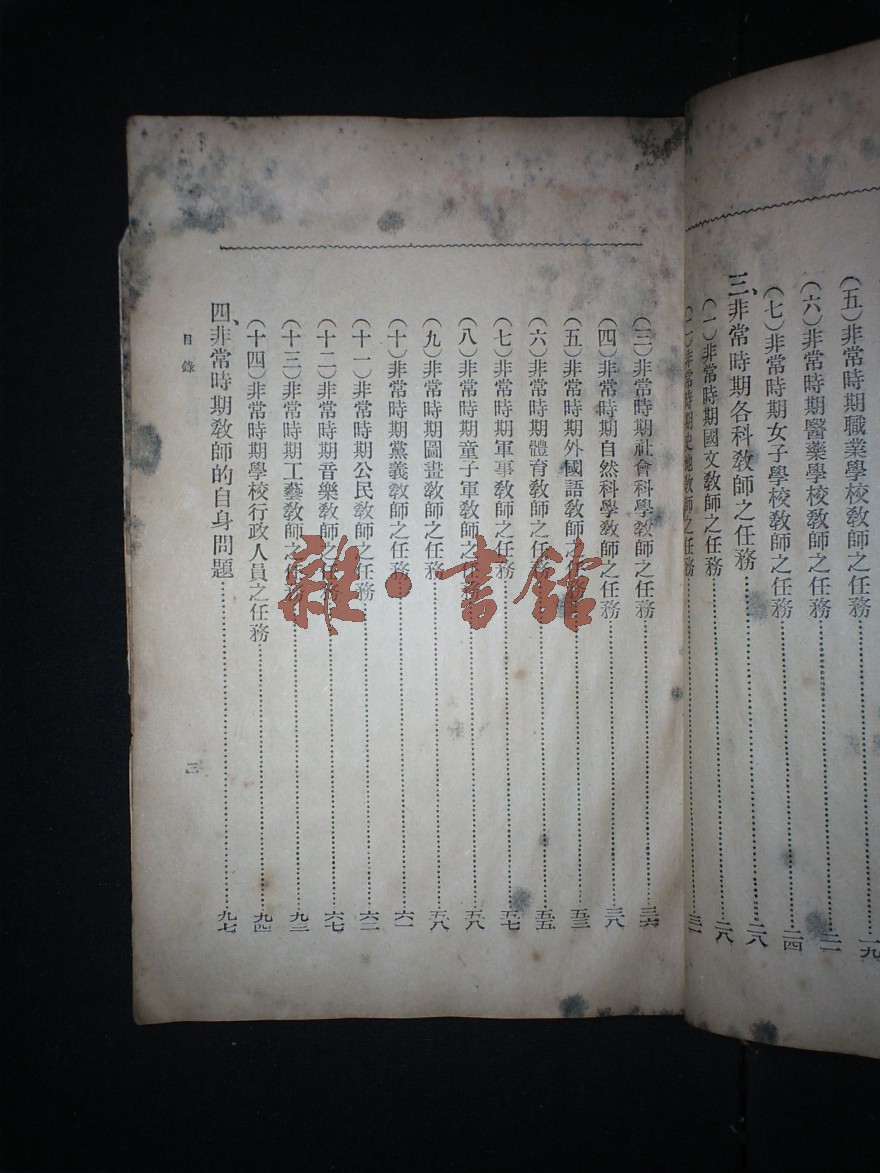 (五)非常時期職業學校敎師之任務……一九
(六)非常時期醫藥學校敎師之任務……二一
(七)非常時期女子學校敎師之任務……二四
三、非常時期各科敎師之任務……二八
(一)非常時期國文敎師之任務……二八
(二)非常時期史地敎師之任務
(三)非常時期社會科學敎師之任務……三六
(四)非常時期自然科學敎師之任務……三八
(五)非常時期外國語敎師之任務……五三
(六)非常時期體育敎師之任務……五五
(七)非常時期軍事敎師之任務……五七
(八)非常時期童子軍敎師之任務……五八
(九)非常時期圖畫敎師之任務……五八
(十)非常時期黨義敎師之任務……六一
(十一)非常時期公民敎師之任務……六二
(十二)非常時期音樂敎師之任務……六七
(十三)非常時期工藝敎師之任務……九三
(十四)非常時期學校行政人員之任務……九四
四、非常時期敎師的自身問題……九七
目錄
三
雜·書館